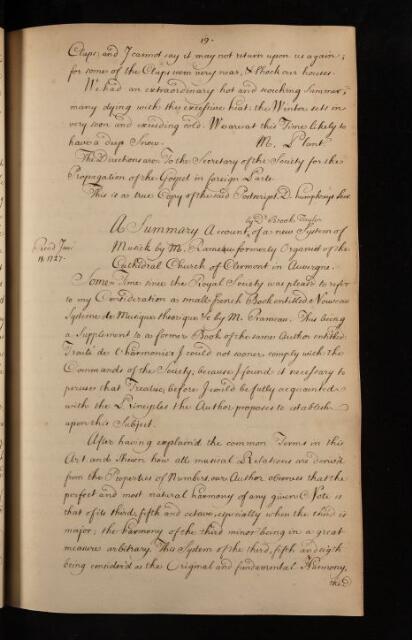 19.
Claps, and I cannot say it may not return upon us again;
for some of the Claps were very near, & shock our houses.
We had an extraordinary hot and scorching Summer,
many dying with the excessive heat: the Winter sets in
very soon and exceeding cold. We are at this Time likely to
have a deep Snow. M. Plant
The Directions are To the Secretary of the Society for the
Propagation of the Gospel in foreign Parts
This is a true Copy of the said Postscript. D. Humphreys Secr
by Dr. Brook Taylor
A Summary Account, of a new System of
Read Janr.
18. 1727.
Musick by M. Rameau formerly Organist of the
Cathedral Church of Clermont in Auvergne.
Some Time since the Royal Society was pleased to refer
to my Consideration a small french Book entitled Nouveau
Systeme de Musique theorique &c by M. Rameau. This being
a Supplement to a former Book of the same Author entitled
Traité de l'harmonie I could not sooner comply with the
Commands of the Society, because I found it necessary to
peruse that Treatise, before I could be fully acquainted
with the Principles the Author proposes to establish
upon this Subject.
After having explain'd the common Terms in this
Art and shewn how all musical Relations are deriv'd
from the Properties of Numbers, our Author observes that the
perfect and most natural harmony of any given Note is
that of its third, fifth and octave, especially when the third is
major; the harmony of the third minor being in a great
measure arbitrary. This System of the third, fifth and eigth
being consider'd as the Original and fundamental Harmony,